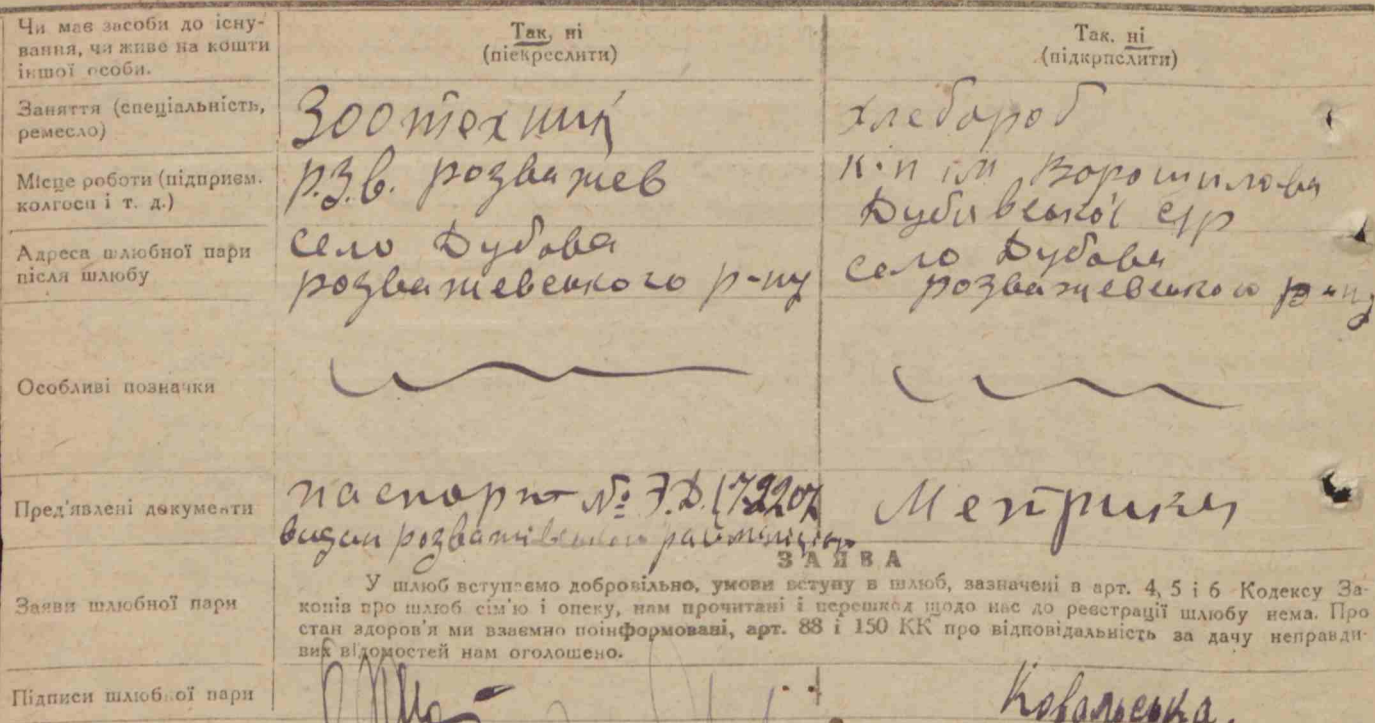 Чи має засоби до існування, чи живе на кошти іншої особи.
Так, ні
(піекреслити)
Так, ні
(підкрпслити)
Заняття (спеціальність, ремесло)
Зоотехник
хлебороб
Місце роботи (підприєм. колгосп і т. д.)
р.з.в. розважев
к-п ім Ворошилова
Дубовської с/р
Адреса шлюбної пари після шлюбу
село Дубова
розважевського р-ну
село Дубова
розважевського р-ну
Особливі позначки
Пред'явлені документи
паспорт № Э.Д.
видан розважівською райміліцією
Метрики
ЗАЯВА
Заяви шлюбної пари
У шлюб вступаємо добровільно, умови вступу в шлюб, зазначені в арт. 4, 5 і 6 Кодексу За-
конів про шлюб сім'ю і опеку, нам прочитані і перешкод щодо нас до реєстрації шлюбу нема. Про
стан здоров'я ми взаємно поінформовані, арт. 88 і 150 КК про відповідальність за дачу неправди-
вих відомостей нам оголошено.
Підписи шлюбної пари
Ковальська